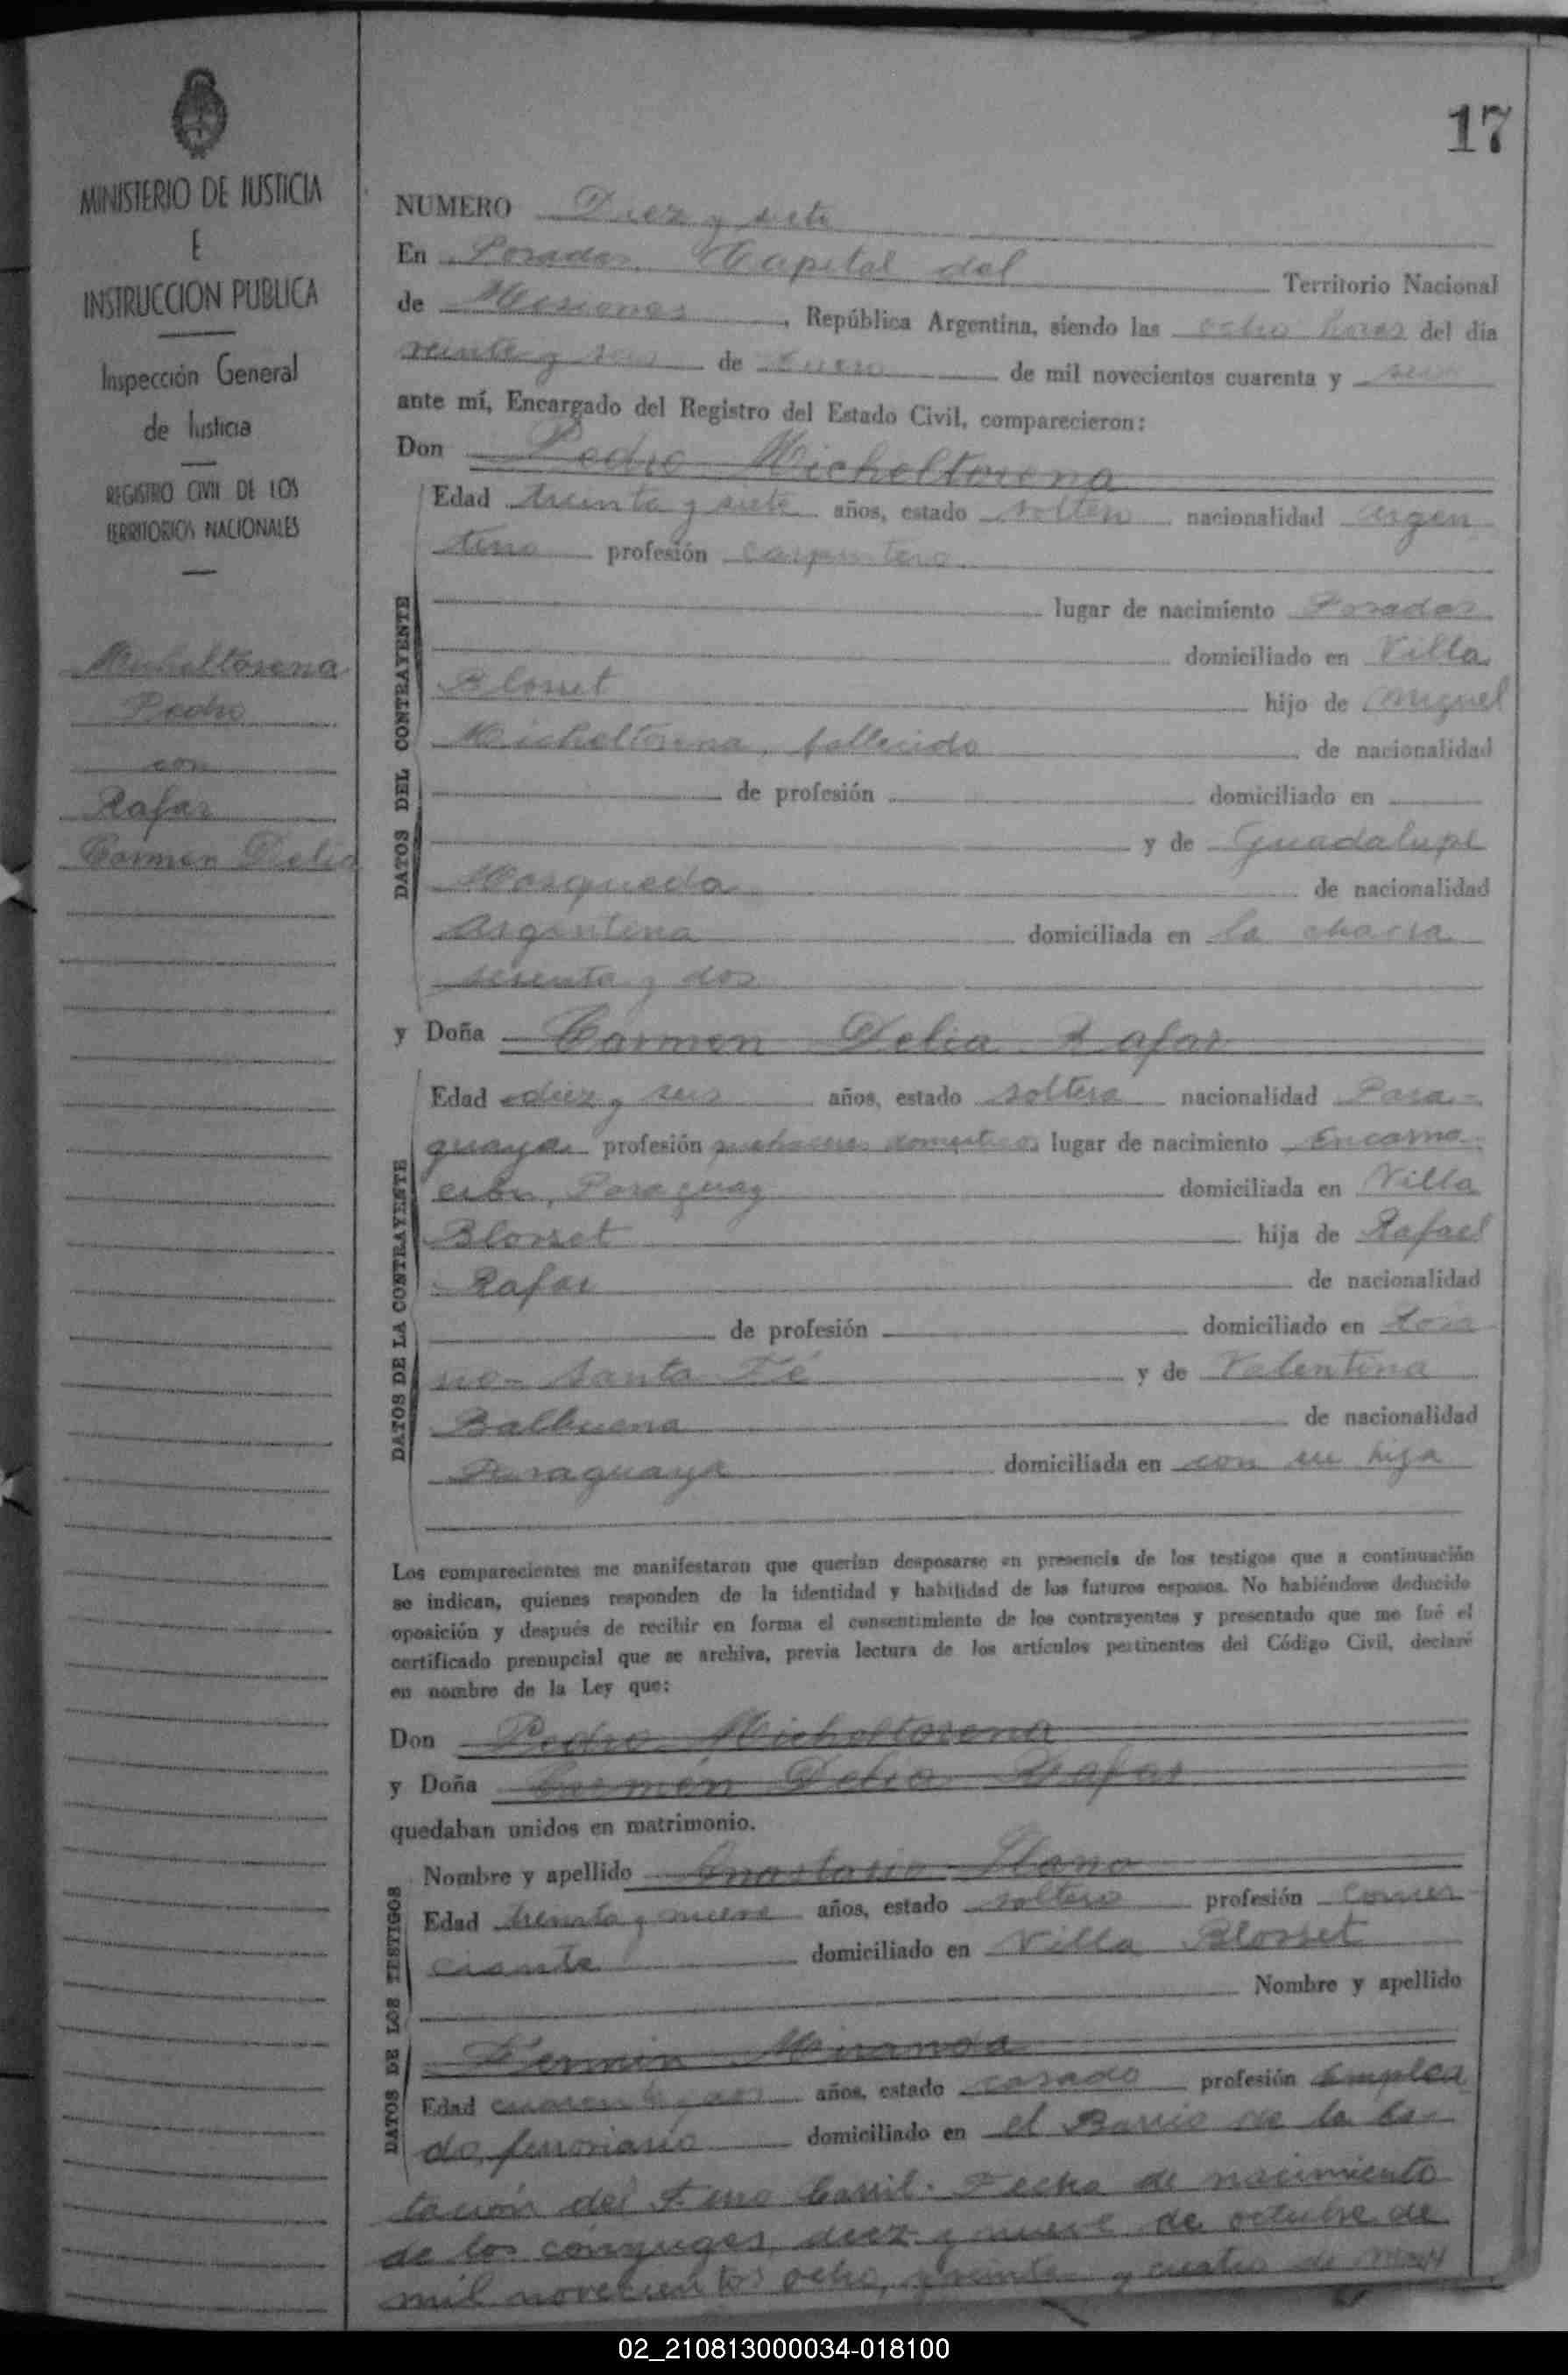 17
MINISTERIO DE JUSTICIA
E
INSTRUCCION PUBLICA
Inspección General
de Justicia
REGISTRO CIVIL DE LOS
TERRITORIOS NACIONALES
Micheltorena
Pedro
con
Rafar
Carmen Delia
NUMERO Diez y siete
En Posadas Capital del Territorio Nacional
de Misiones, República Argentina, siendo las ocho horas del día
veinte y seis de Enero de mil novecientos cuarenta y seis
ante mí, Encargado del Registro del Estado Civil, comparecieron:
Don Pedro Micheltorena
DATOS DEL CONTRAYENTE
Edad treinta y siete años, estado soltero nacionalidad argen
tino profesión carpintero
lugar de nacimiento Posadas
domiciliado en Villa
Blosset hijo de Miguel
Micheltorena, fallecido de nacionalidad
de profesión domiciliado en
y de Guadalupe
Mosqueda de nacionalidad
Argentina domiciliada en la chacra
sesenta y dos
y Doña Carmen Delia Rafar
DATOS DE LA CONTRAYENTE
Edad diez y seis años, estado soltera nacionalidad Para-
guaya profesión quehaceres domesticos lugar de nacimiento Encarna
ción, Paraguay domiciliada en Villa
Blosset hija de Rafael
Rafar de nacionalidad
de profesión domiciliado en
Santa Fé y de Valentina
Balbuena de nacionalidad
Paraguaya domiciliada en con su hija
Los comparecientes me manifestaron que querían desposarse en presencia de los testigos que a continuación
se indican, quienes responden de la identidad y habilidad de los futuros esposos. No habiéndose deducido
oposición y después de recibir en forma el consentimiento de los contrayentes y presentado que me fué el
certificado prenupcial que se archiva, previa lectura de los artículos pertinentes del Código Civil, declaré
en nombre de la Ley que:
Don Pedro Micheltorena
y Doña Carmen Delia Rafar
quedaban unidos en matrimonio.
DATOS DE LOS TESTIGOS
Nombre y apellido Anastasio Llano
Edad treinta y nueve años, estado soltero profesión comer
ciante domiciliado en Villa Blosset
Nombre y apellido
Fermin Miranda
Edad cuarenta y dos años, estado casado profesión emplea
do ferroviario domiciliado en el Barrio de la Es-
tación del Ferro Carril. Fecha de nacimiento
de los cónyuges, diez y nueve de octubre de
mil novecientos ocho, y veinte y cuatro de
02_210813000034-018100